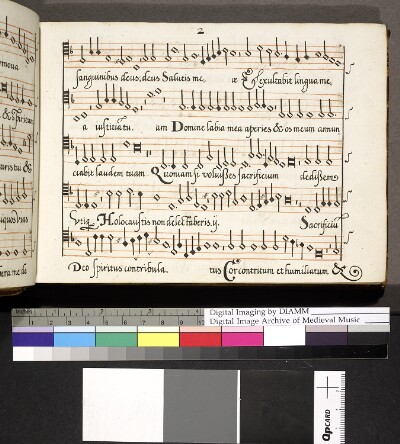 2
sanguinibus deus, deus Salutis me, æ Et exultabit lingua me,
a iustitia tu. am Domine labia mea aperies & os meum annun
ciabit laudem tuam Quoniam si voluisses sacrificium dedissem
vtiq, Holocaustis non delectaberis. ij. Sacrificiū
Deo spiritus contribula. tus Cor contritum et humiliatum &
Digital Imaging by DIAMM
Digital Image Archive of Medieval Music
QPCARD